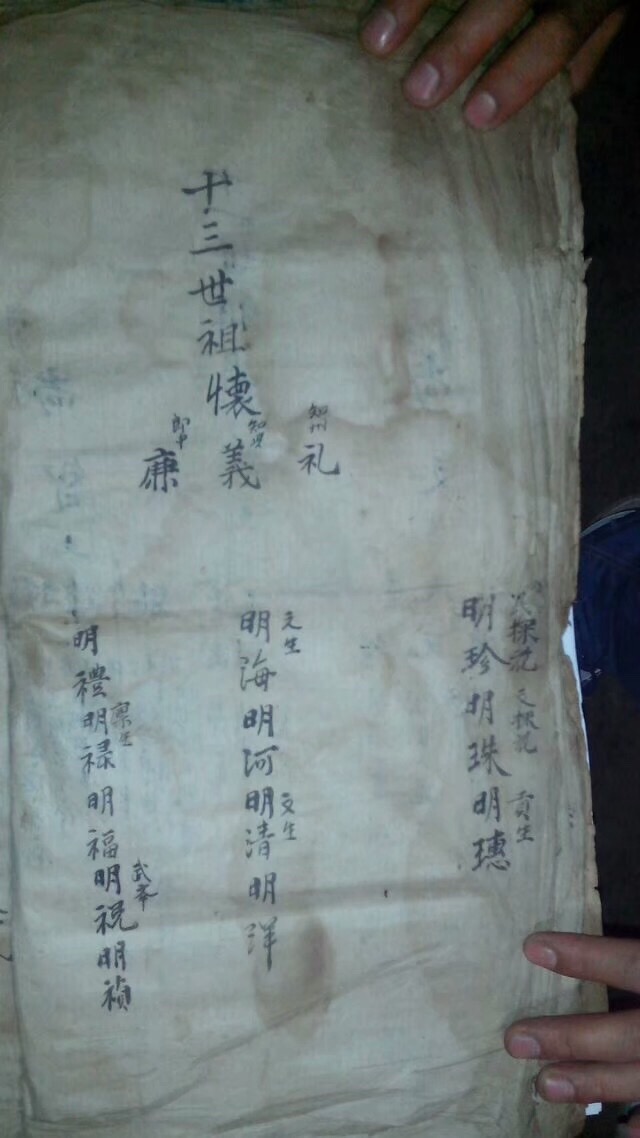 十三世祖懷
知州
礼
義
郎中
廉
探花 文探花 貢生
明珍明珠明璁
文生 文生
明海明河明清明洋
廩生 武舉
明禮明禄明福明祝明禎